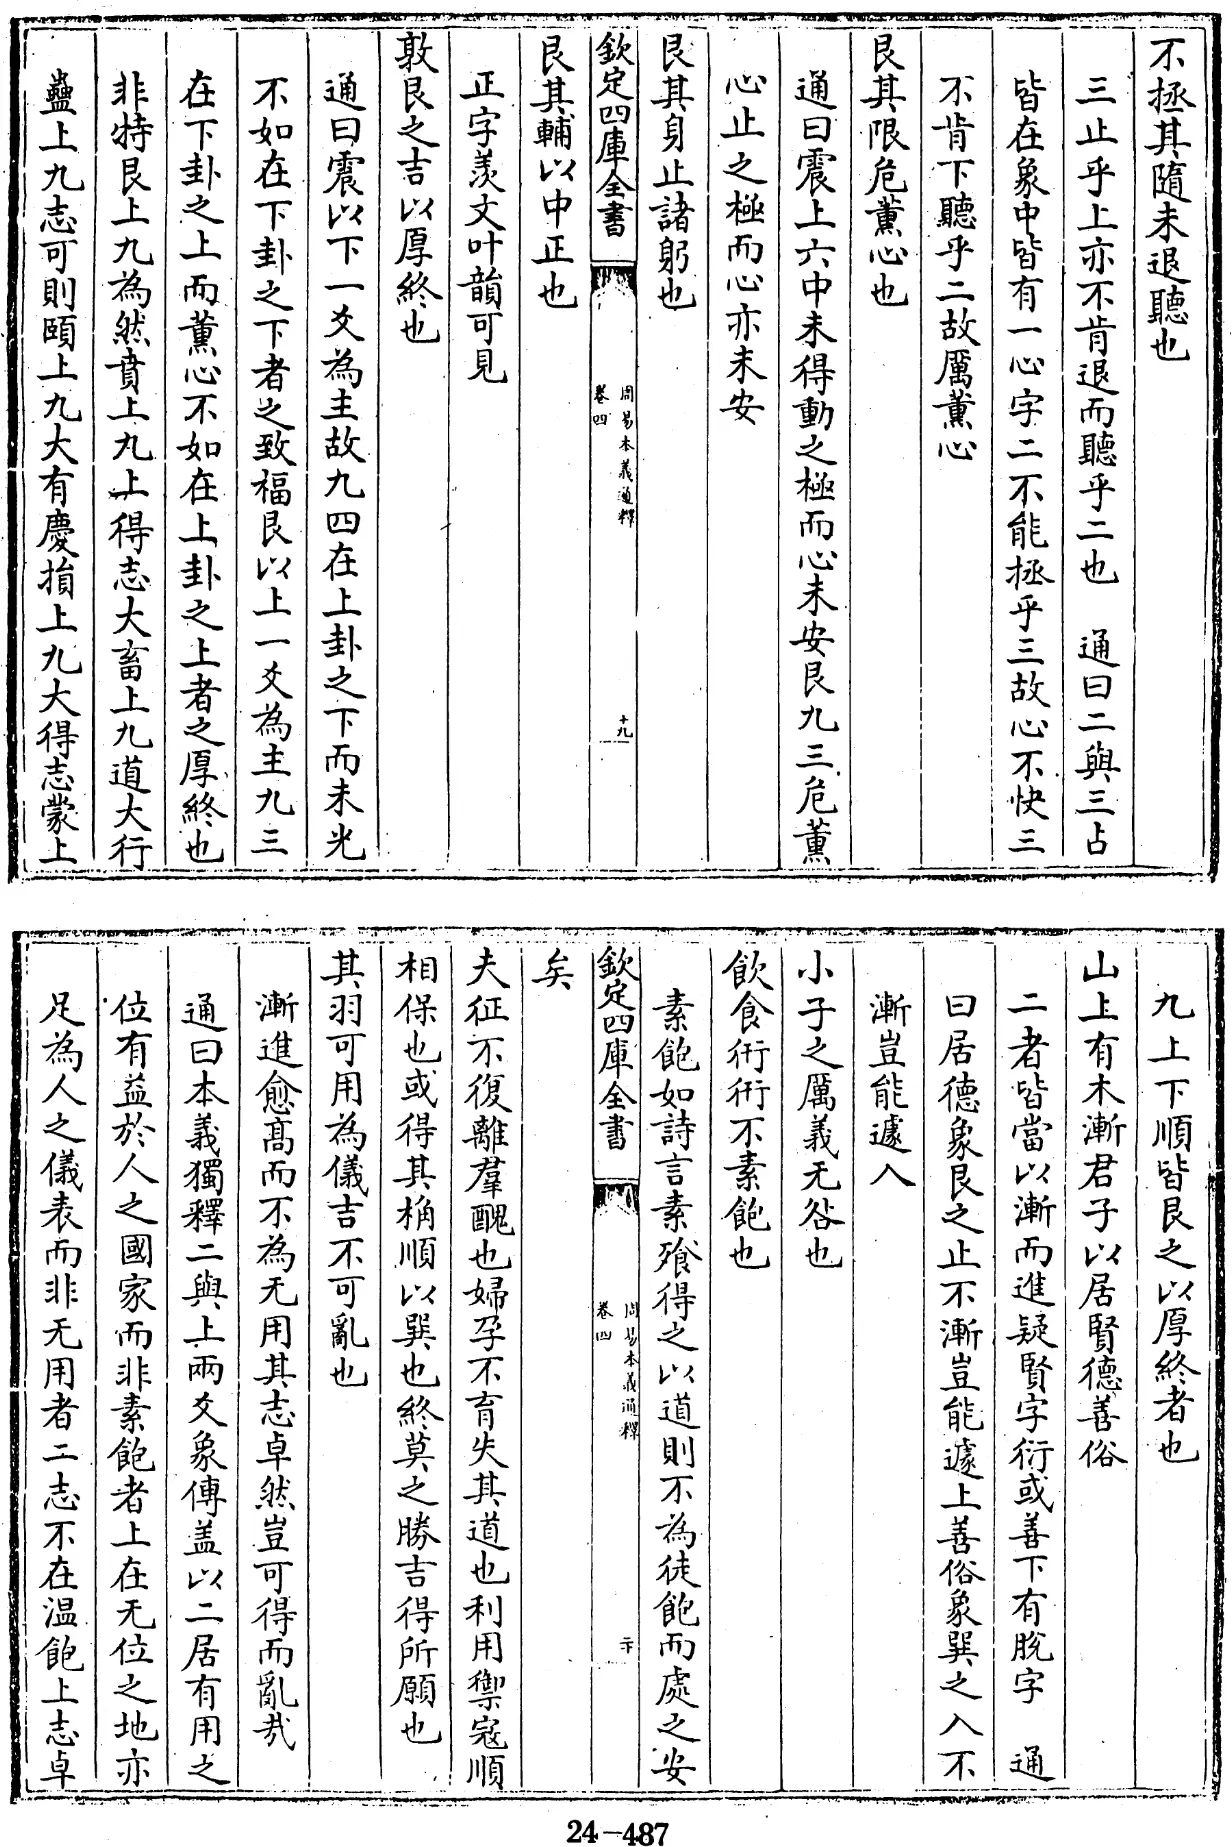 不拯其隨未退聽也
三止乎上亦不肯退而聽乎二也　通曰二與三占
皆在象中皆有一心字二不能拯乎三故心不快三
不肯下聽乎二故厲薰心
艮其限危薰心也
通曰震上六中未得動之極而心未安艮九三危薰
心止之極而心亦未安
艮其身止諸躬也
欽定四庫全書
周易本義通釋
卷四
十九
艮其輔以中正也
正字羨文叶韻可見
敦艮之吉以厚終也
通曰震以下一爻為主故九四在上卦之下而未光
不如在下卦之下者之致福艮以上一爻為主九三
在下卦之上而薰心不如在上卦之上者之厚終也
非特艮上九為然賁上九上得志大畜上九道大行
蠱上九志可則頤上九大有慶損上九大得志蒙上
九上下順皆艮之以厚終者也
山上有木漸君子以居賢德善俗
二者皆當以漸而進疑賢字衍或善下有脫字　通
曰居德象艮之止不漸豈能遽上善俗象巽之入不
漸豈能遽入
小子之厲義无咎也
飲食衎衎不素飽也
素飽如詩言素飱得之以道則不為徒飽而處之安
欽定四庫全書
周易本義通釋
卷四
二十
矣
夫征不復離羣醜也婦孕不育失其道也利用禦寇順
相保也或得其桷順以巽也終莫之勝吉得所願也
其羽可用為儀吉不可亂也
漸進愈髙而不為无用其志卓然豈可得而亂哉
通曰本義獨釋二與上兩爻象傳盖以二居有用之
位有益於人之國家而非素飽者上在无位之地亦
足為人之儀表而非无用者二志不在温飽上志卓
24-487